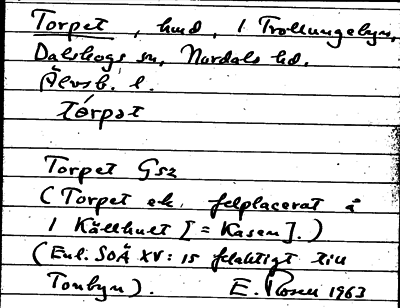 Torpet, hmd, i Trollungebyn,
Dalskogs sn, Nordals hd.
Älvsb. l.
tórpət
Torpet Gsz
(Torpet ek. felplacerat å
i Källhult [= Kasen].)
(Enl. SOÄ XV: 15 felaktigt till
Tonbyn). E. Rosen 1963